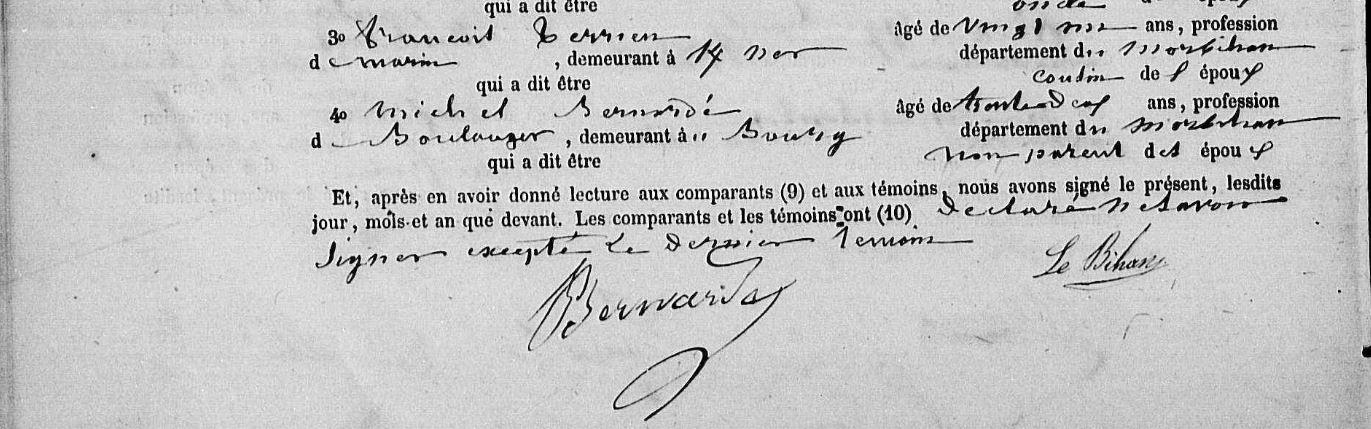 qui a dit être oncle de l époux
3o francois Terrien âgé de vingt un ans, profession
d marin , demeurant à département du morbihan
qui a dit être cousin de l époux
4o michel Bernardé âgé de trente deux ans, profession
d Boulanger , demeurant à u Bourg département du morbihan
qui a dit être non parent des époux
Et, après en avoir donné lecture aux comparants (9) et aux témoins, nous avons signé le présent, lesdits
jour, mois et an que devant. Les comparants et les témoins ont (10) declaré ne savoir
signer excepté le dernier temoin
Le Bihan
Bernardé